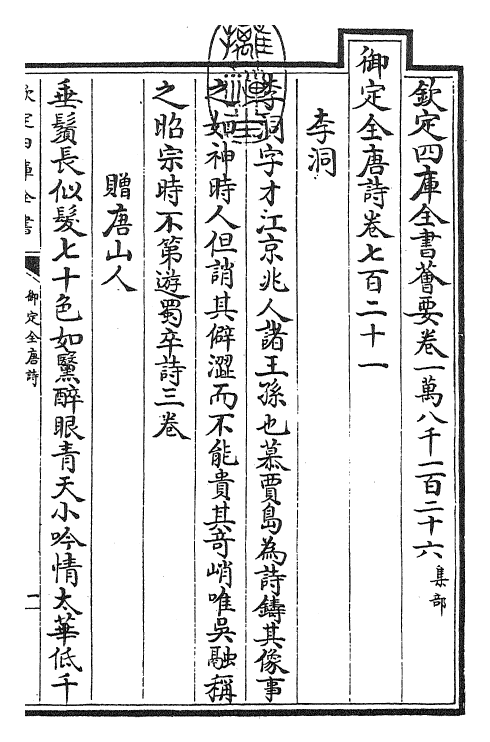 欽定四庫全書薈要卷一萬八千一百二十六 集部
御定全唐詩卷七百二十一
李洞
李洞字才江京兆人諸王孫也慕賈島為詩鑄其像事
之如神時人但誚其僻澀而不能貴其奇峭唯吳融稱
之昭宗時不第遊蜀卒詩三卷
贈唐山人
垂鬚長似髮七十色如黳醉眼青天小吟情太華低千
欽定四庫全書
御定全唐詩